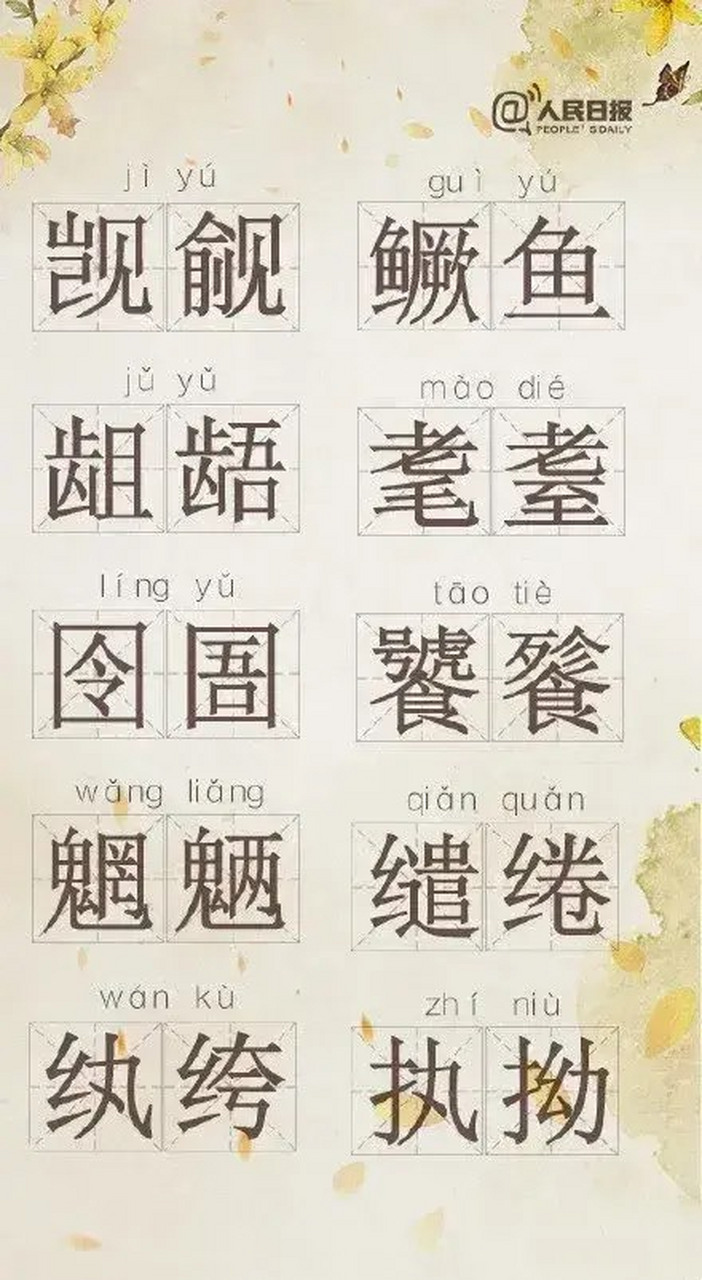 @人民日报
PEOPLE'S DAILY
jì yú guì yú
觊觎 鳜鱼
jǔ yǔ mào dié
龃龉 耄耋
líng yǔ tāo tiè
囹圄 饕餮
wǎng liǎng qiǎn quǎn
魍魉 缱绻
wán kù zhí niù
纨绔 执拗